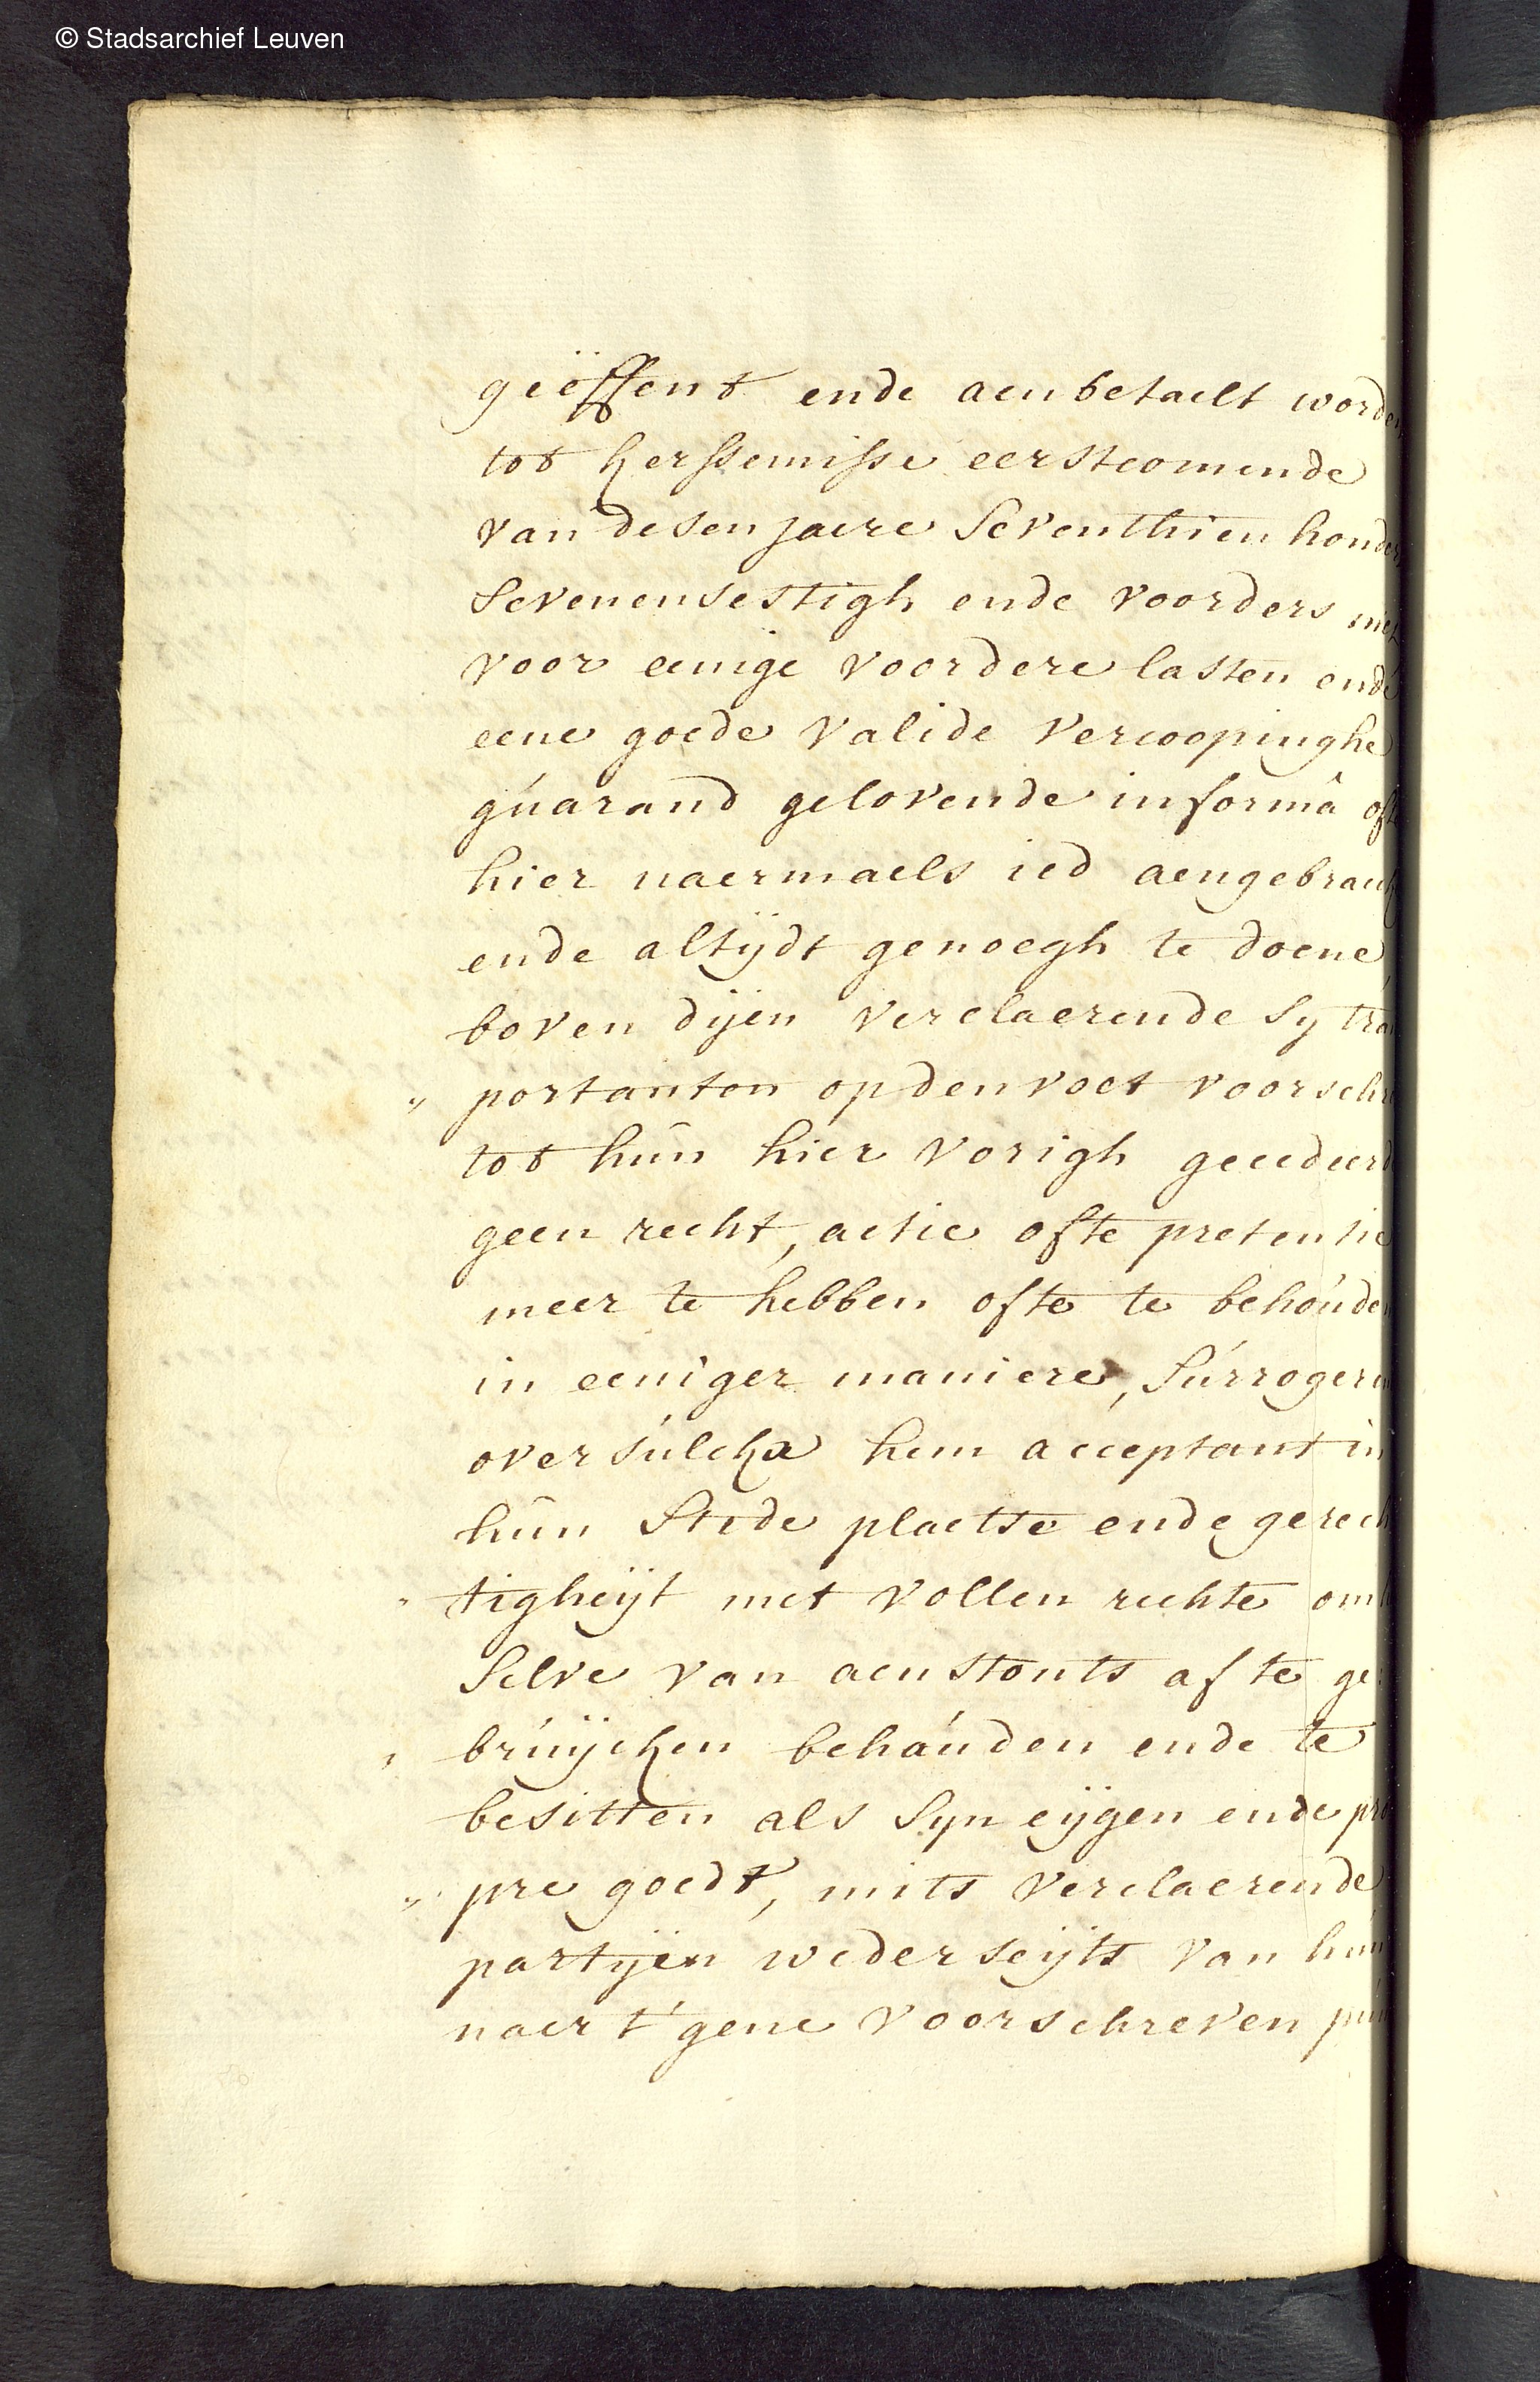 © Stadsarchief Leuven
geëffent ende aenbetaelt worden
tot kerssemisse eerstcomende
van desen jaere seventhien honder
sevenensestigh ende voorders niet
voor eenige voordere lasten ende
eene goede valide vercoopinghe
guarand gelovende in formâ ofte
hier naermaels ied aengebrack
ende altijdt genoegh te doene,
boven dijen verclaerende sy tra
„ portanten op den voet voorschre
tot hun hier vorigh gecedeerd
geen recht, actie ofte pretentie
meer te hebben ofte te behouden
in eeniger maniere, surrogeren
oversulckx hem acceptant in
hun stede plaetse ende gerech
„ tigheijt met vollen rechte om
selve van aenstonts af te ge
„ bruijcken behauden ende te
besitten als syn eijgen ende pro
„ pre goedt, mits verclaerende
partijen wederseijts van hun
naer t'gene voorschreven